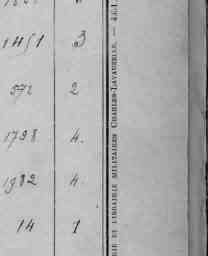 1451 3
572 2
1798 4.
1982 4.
14 1
RIE DE LIBRAIRIE MILITAIRES CHARLES-LAVAUZELLE. —